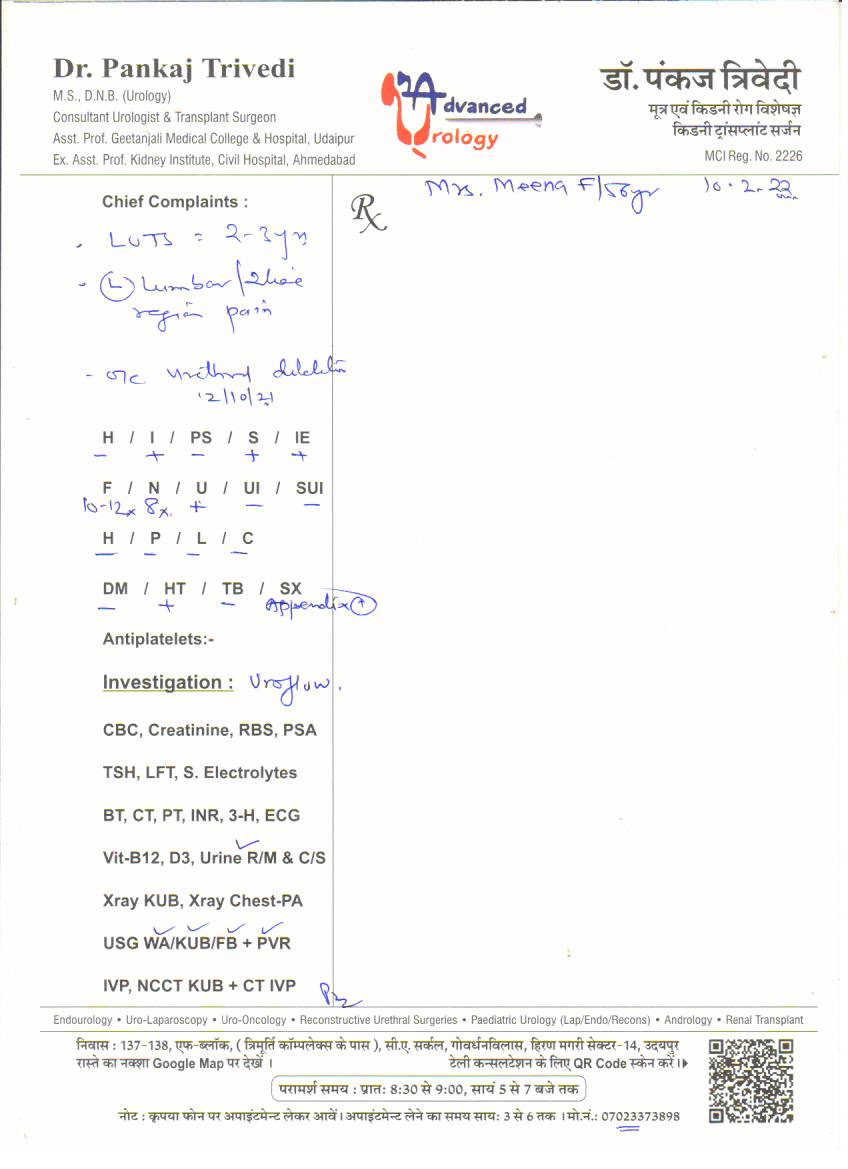 Dr. Pankaj Trivedi
M.S., D.N.B. (Urology)
Consultant Urologist & Transplant Surgeon
Asst. Prof. Geetanjali Medical College & Hospital, Udaipur
Ex. Asst. Prof. Kidney Institute, Civil Hospital, Ahmedabad
Advanced
Urology
डॉ. पंकज त्रिवेदी
मूत्र एवं किडनी रोग विशेषज्ञ
किडनी ट्रांसप्लांट सर्जन
MCI Reg. No. 2226
Mrs. Meena F/56yr 10.2.22
Rx
Chief Complaints :
LUTS = 2-3 yrs
(L) lumbar/
region pain
- o/c urethral dilatation
12/10/21
H / I / PS / S / IE
- + - + +
F / N / U / UI / SUI
10-12x 8x. + - -
H / P / L / C
- - - -
DM / HT / TB / SX
- + - Appendix (+)
Antiplatelets:-
Investigation : Uroflow.
CBC, Creatinine, RBS, PSA
TSH, LFT, S. Electrolytes
BT, CT, PT, INR, 3-H, ECG
Vit-B12, D3, Urine R/M & C/S
Xray KUB, Xray Chest-PA
USG WA/KUB/FB + PVR
IVP, NCCT KUB + CT IVP
Endourology • Uro-Laparoscopy • Uro-Oncology • Reconstructive Urethral Surgeries • Paediatric Urology (Lap/Endo/Recons) • Andrology • Renal Transplant
निवास : 137-138, एफ-ब्लॉक, ( त्रिमूर्ति कॉम्पलेक्स के पास ), सी.ए. सर्कल, गोवर्धनविलास, हिरण मगरी सेक्टर-14, उदयपुर
रास्ते का नक्शा Google Map पर देखें । टेली कन्सलटेशन के लिए QR Code स्केन करें।
परामर्श समय : प्रातः 8:30 से 9:00, सायं 5 से 7 बजे तक
नोट : कृपया फोन पर अपाइंटमेन्ट लेकर आवें। अपाइंटमेन्ट लेने का समय सायः 3 से 6 तक । मो.नं.: 07023373898